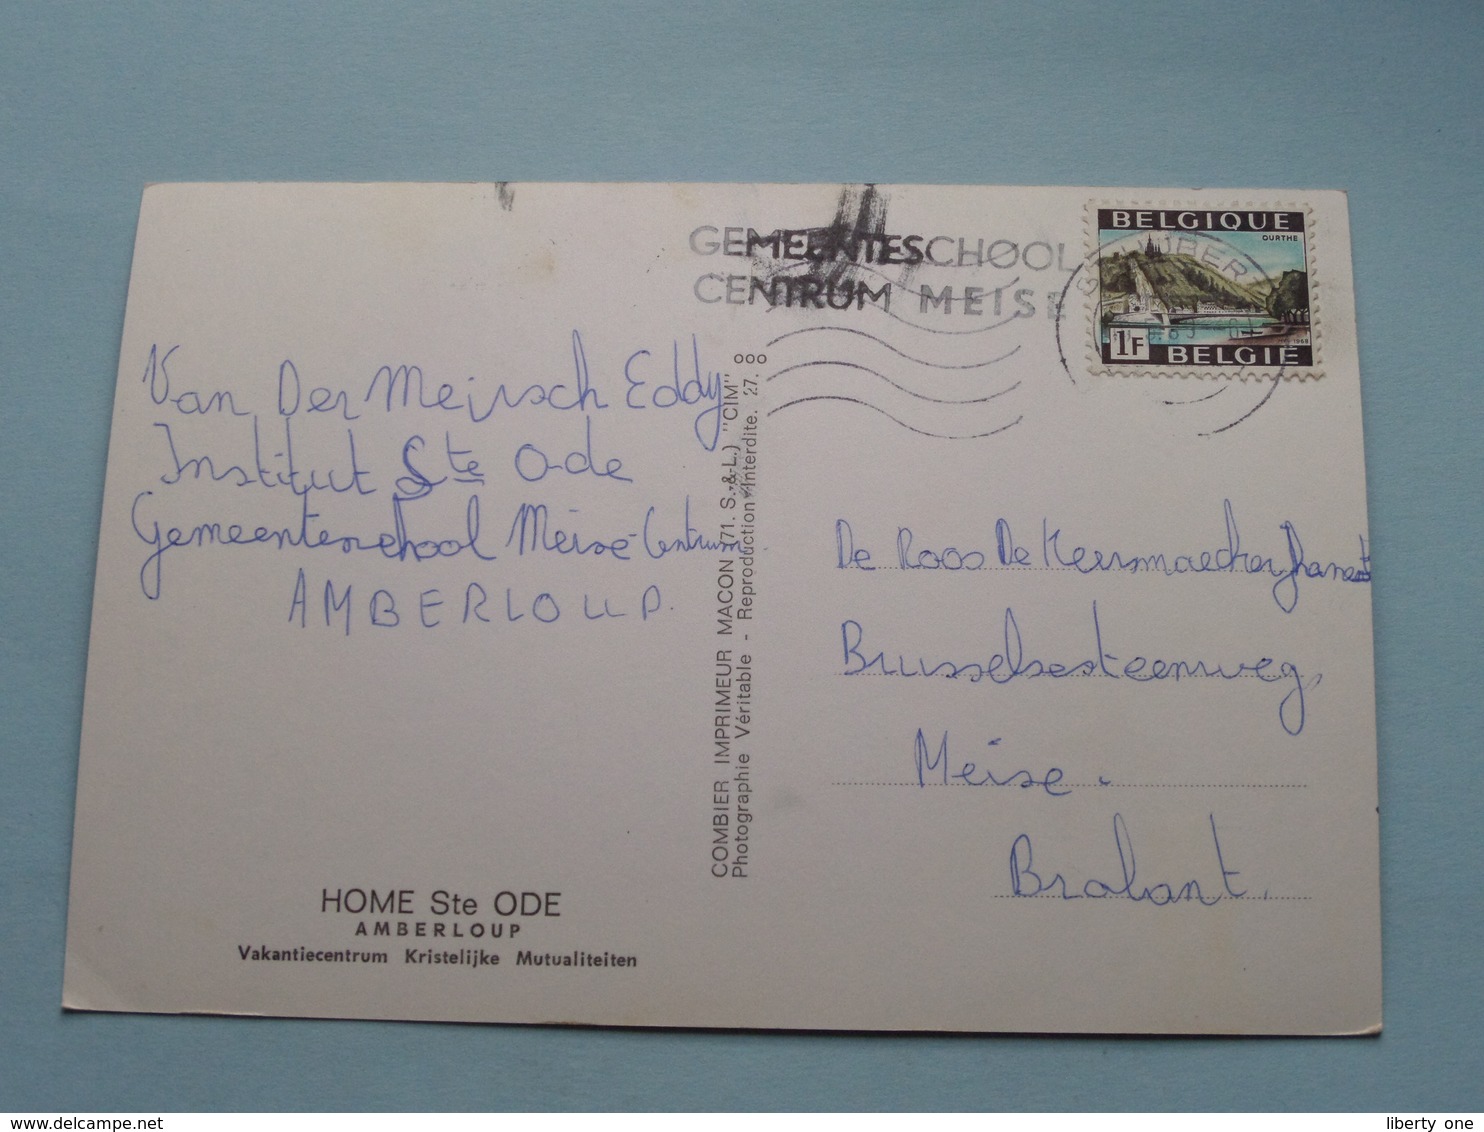 GEMEENTESCHOOL
CENTRUM MEISE
BELGIQUE
OURTHE
1F
BELGIË
Van Der Meirsch Eddy
Institut Ste Ode
Gemeenteschool Meise-Centrum
AMBERLOUP.
HOME Ste ODE
AMBERLOUP
Vakantiecentrum Kristelijke Mutualiteiten
COMBIER IMPRIMEUR MACON (71. S.-&-L.) "CIM"
Photographie Véritable - Reproduction Interdite. 27. ooo
De Roos De Keersmaecker
Brusselsesteenweg
Meise.
Brabant.
delcampe.net
liberty one